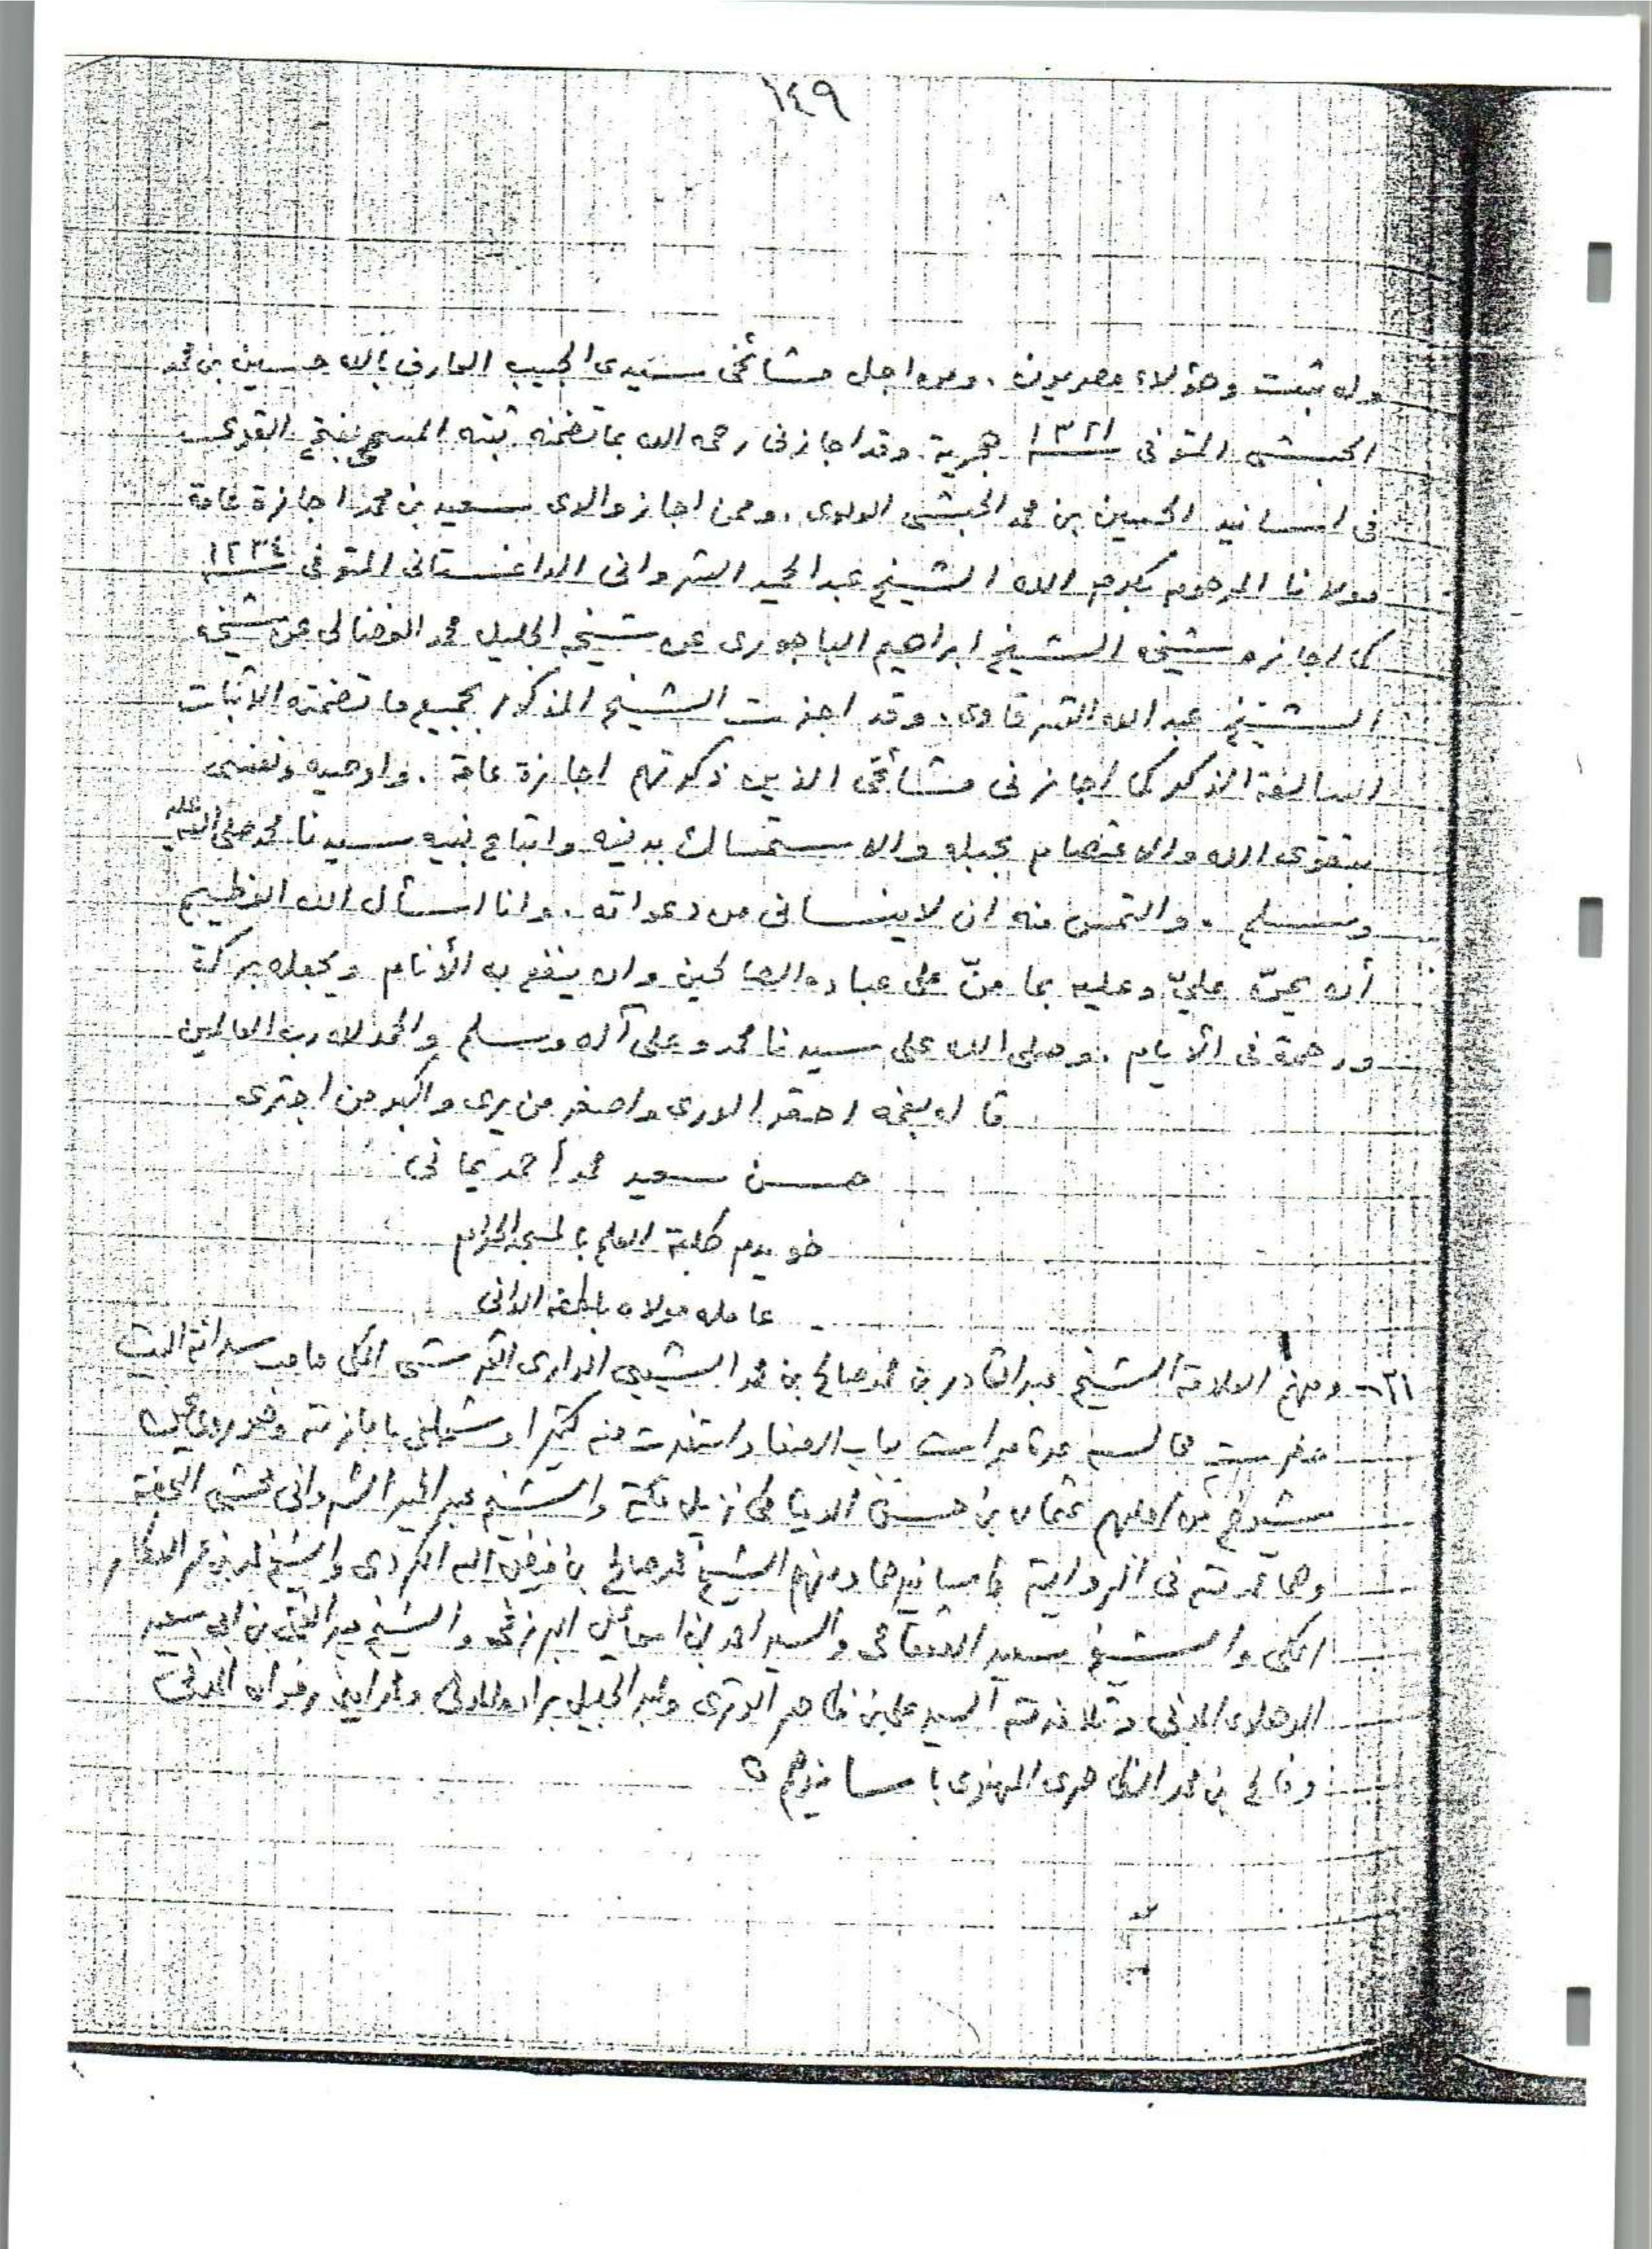 ١٤٩
وله ثبت وهؤلاء مصريون . ومن اجل مشائخى سيدى الحبيب العارف بالله حسين بن محمد
الحبشى المتوفى ١٣٢١ هجرية . وقد اجازنى رحمه الله بما تضمنه ثبته المسمى بفتح القوى
فى اسانيد الحسين بن محمد الحبشى العلوى . وممن اجاز والدى سعيد بن محمد اجازة عامة
مولانا المرحوم بكرم الله الشيخ عبد الحميد الشروانى الداغستانى المتوفى ١٢٣٤
كما اجازه شيخه الشيخ ابراهيم الباجورى عن شيخه الجليل محمد الفضالى عن شيخه
الشيخ عبد الله الشرقاوى . وقد اجزت الشيخ المذكور بجميع ما تضمنته الاثبات
السالفة الذكر كما اجازنى مشائخى الذين ذكرتهم اجازة عامة . واوصيه ونفسى
بتقوى الله والاعتصام بحبله والاستمساك بدينه واتباع نبيه سيدنا محمد صلى الله عليه
وسلم . والتمس منه ان لا ينسانى من دعواته . وانا اسأل الله العظيم
أن يمنّ عليّ وعليه بما منّ على عباده الصالحين وان ينفع به الأنام ويجعله بركة
ورحمة فى الأيام . وصلى الله على سيدنا محمد وعلى آله وسلم والحمد لله رب العالمين
قاله بفمه احقر الورى واصغر من يرى واكبر من اجترى
حسن سعيد محمد أحمد يمانى
خويدم طلبة العلم بالمسجد الحرام
عامله مولاه بلطفه الدانى
٢١- ومنهم العلامة الشيخ عبد القادر بن محمد صالح بن محمد الشيبى الدارى القرشى المكى صاحب سدانة البيت
حضرت مجالسه عدة مرات بباب الصفا واستفدت منه كثيرا وشملنى باجازته وهو يروى عن
شيوخ من اجلهم عثمان بن حسن الدمياطى نزيل مكة والشيخ عبد الحميد الشروانى محشى التحفة
وهما عمدته فى الرواية باسانيدهما ومنهم الشيخ محمد صالح بن فيض الله الكردى والشيخ محمد بن عمر العطار
المكى والشيخ سعيد القعقاعى والسيد احمد بن اسماعيل البرزنجى والشيخ عبد الغنى بن ابى سعيد
الدهلوى المدنى وتلامذته السيد على بن ظاهر الوترى وعبد الجليل براده المدنى ومحمد امين رضوان المدنى
وفالح بن محمد الظاهرى المهنوى باسانيدهم ه